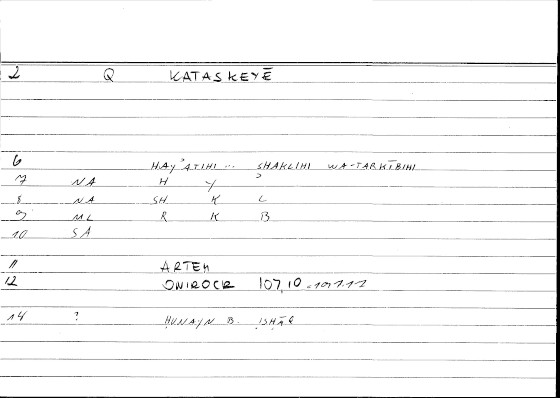 2 Q KATASKEYĒ
6 HAY'ATIHI ... SHAKLIHI WA-TARKĪBIHI
7 NA H Y ʾ
8 NA SH K L
9 ML R K B
10 SA
11 ARTEM
12 ONIROCR 107,10
14 ? ḤUNAYN B. ISḤĀQ